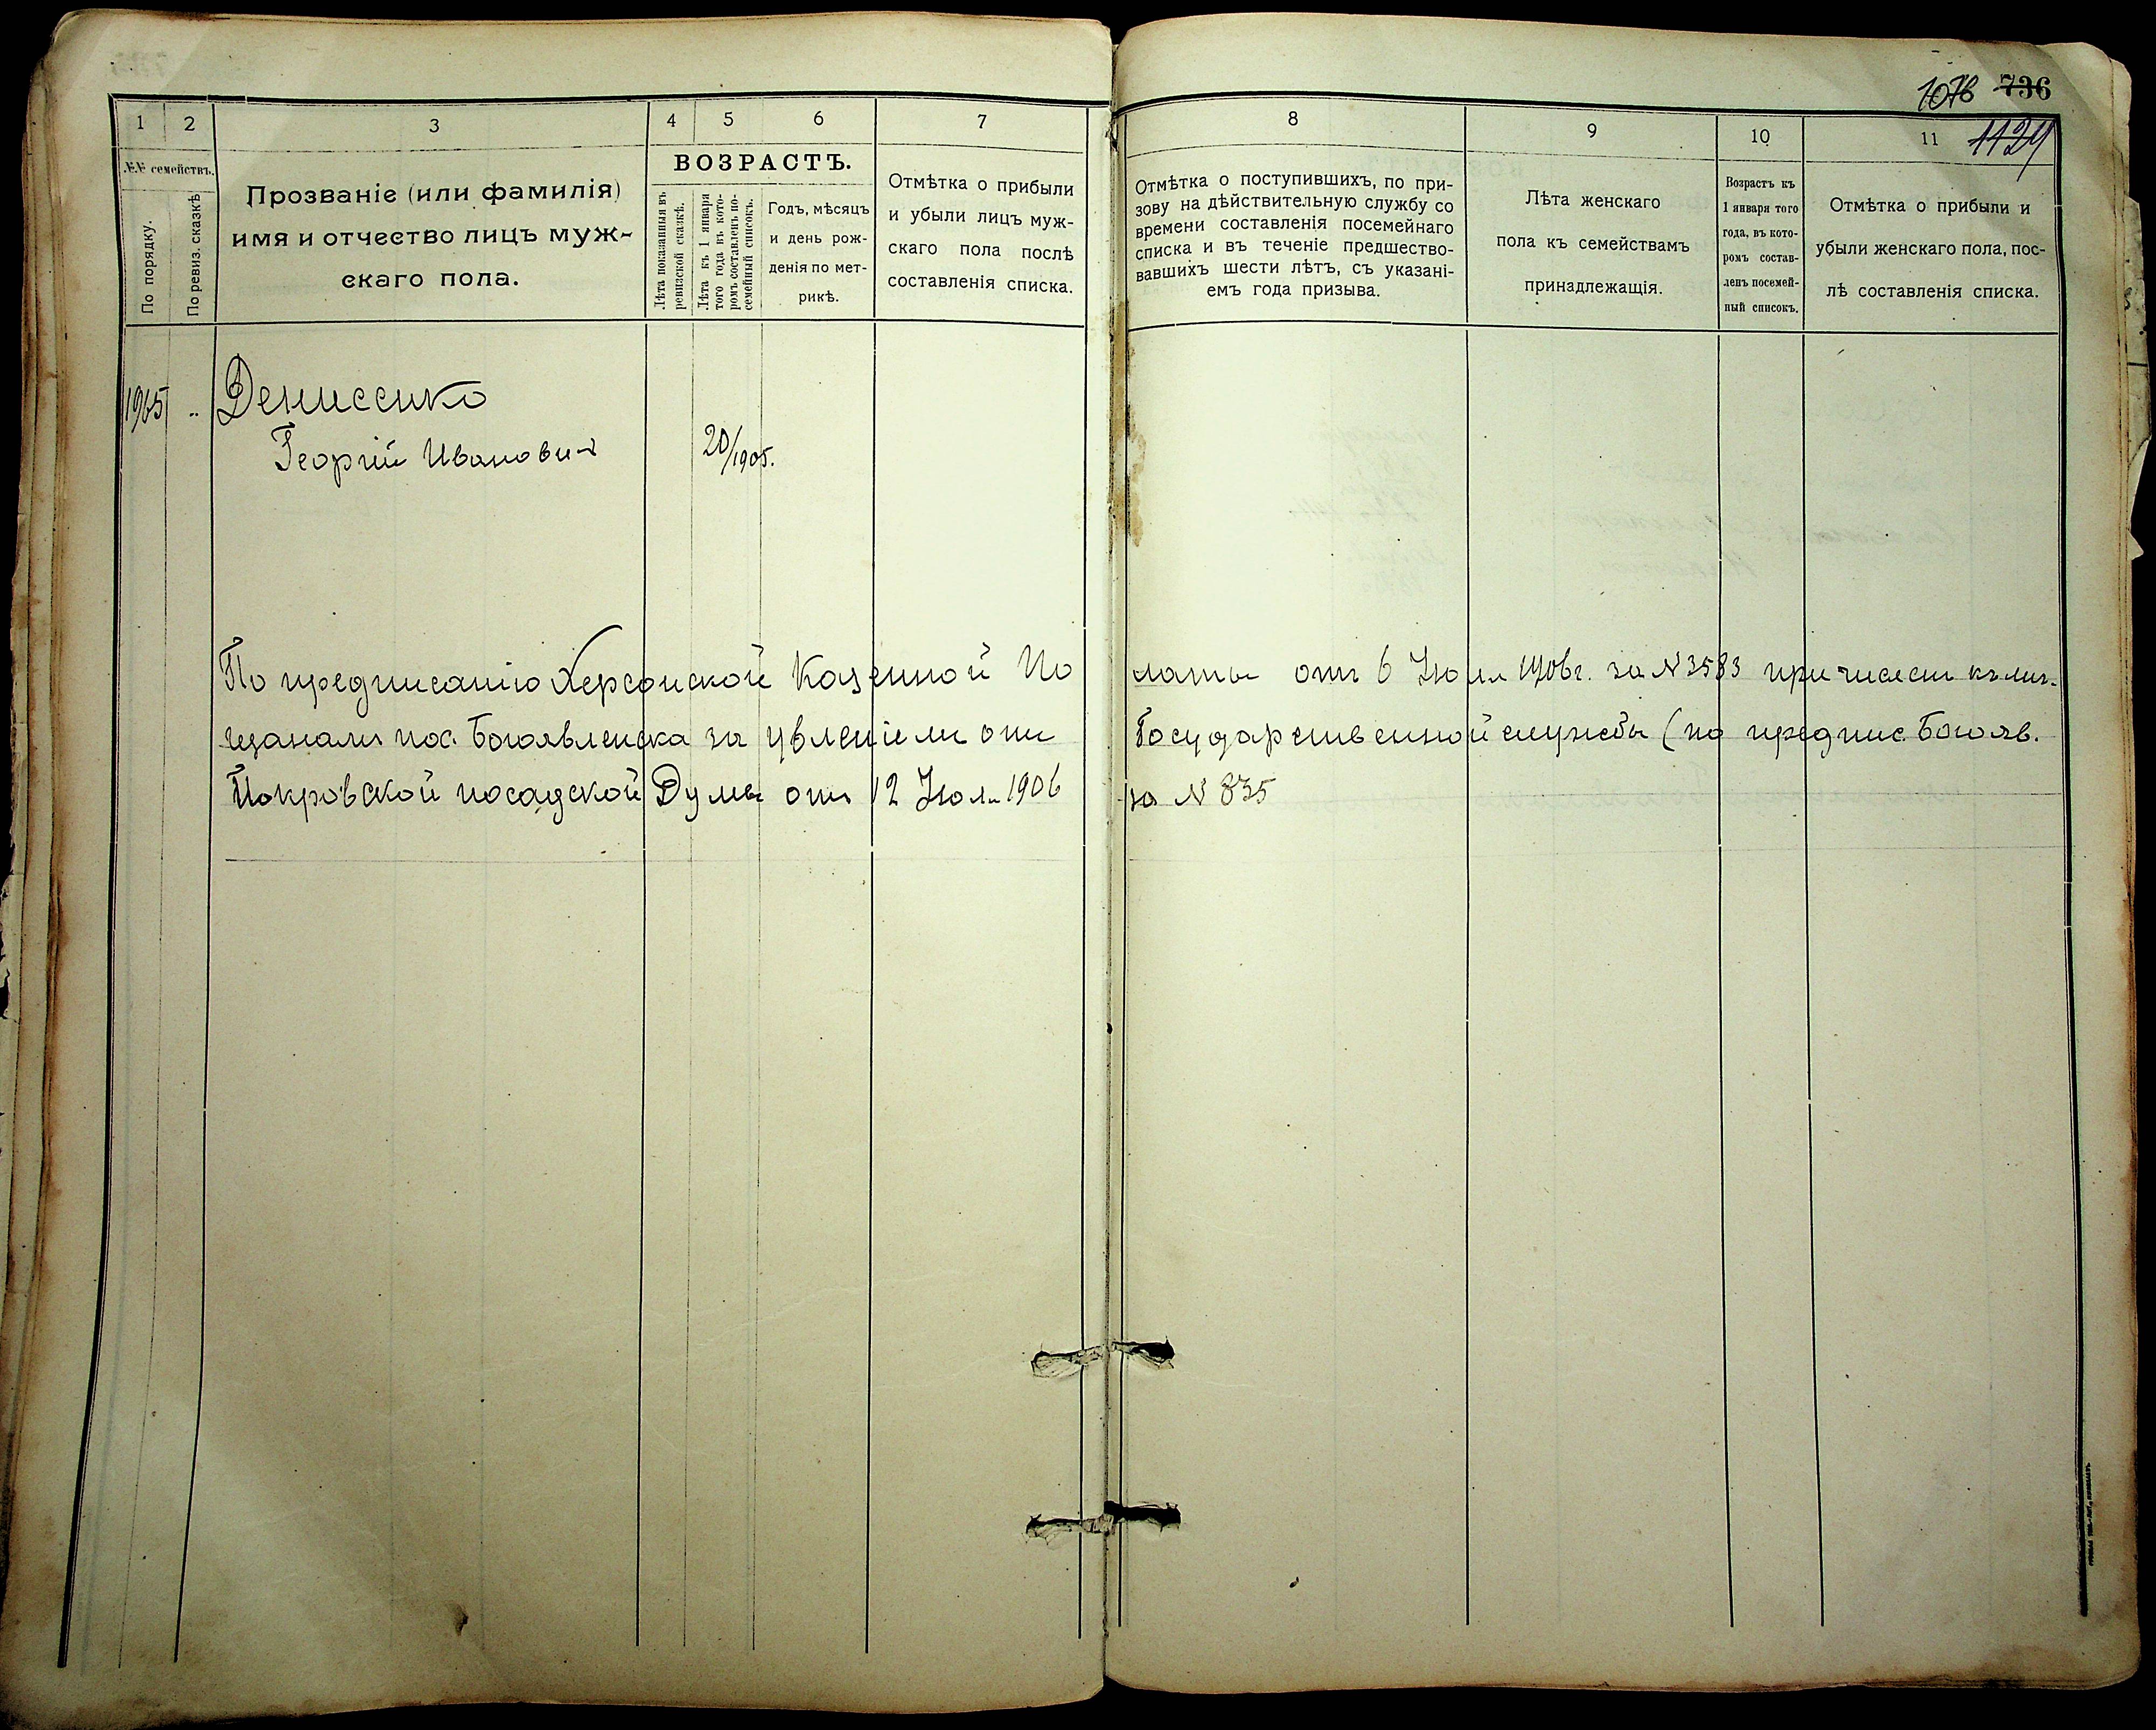 1076 736
1129
1
2
3
4
5
6
7
№№ семействъ.
По порядку.
По ревиз. сказкѣ
Прозваніе (или фамилія)
имя и отчество лицъ муж-
скаго пола.
ВОЗРАСТЪ.
Лѣта показанныя въ
ревизской сказкѣ.
Лѣта къ 1 января
того года въ кото-
ромъ составленъ по-
семейный списокъ.
Годъ, мѣсяцъ
и день рож-
денія по мет-
рикѣ.
Отмѣтка о прибыли
и убыли лицъ муж-
скаго пола послѣ
составленія списка.
8
9
10
11
Отмѣтка о поступившихъ, по при-
зову на дѣйствительную службу со
времени составленія посемейнаго
списка и въ теченіе предшество-
вавшихъ шести лѣтъ, съ указані-
емъ года призыва.
Лѣта женскаго
пола къ семействамъ
принадлежащія.
Возрастъ къ
1 января того
года, въ кото-
ромъ состав-
ленъ посемей-
ный списокъ.
Отмѣтка о прибыли и
убыли женскаго пола, пос-
лѣ составленія списка.
1965 "
Денисенко
Георгій Иванович
20/1905.
По предписанію Херсонской Казенной Па
латы от 6 Июля 1906г. за N 3583 причислен къ мѣ-
щанам пос. Богоявленска за увленіем от
Государственной службы (по предпис. Богояв.
Покровской посадской Думы от 12 Июля 1906
за N 835